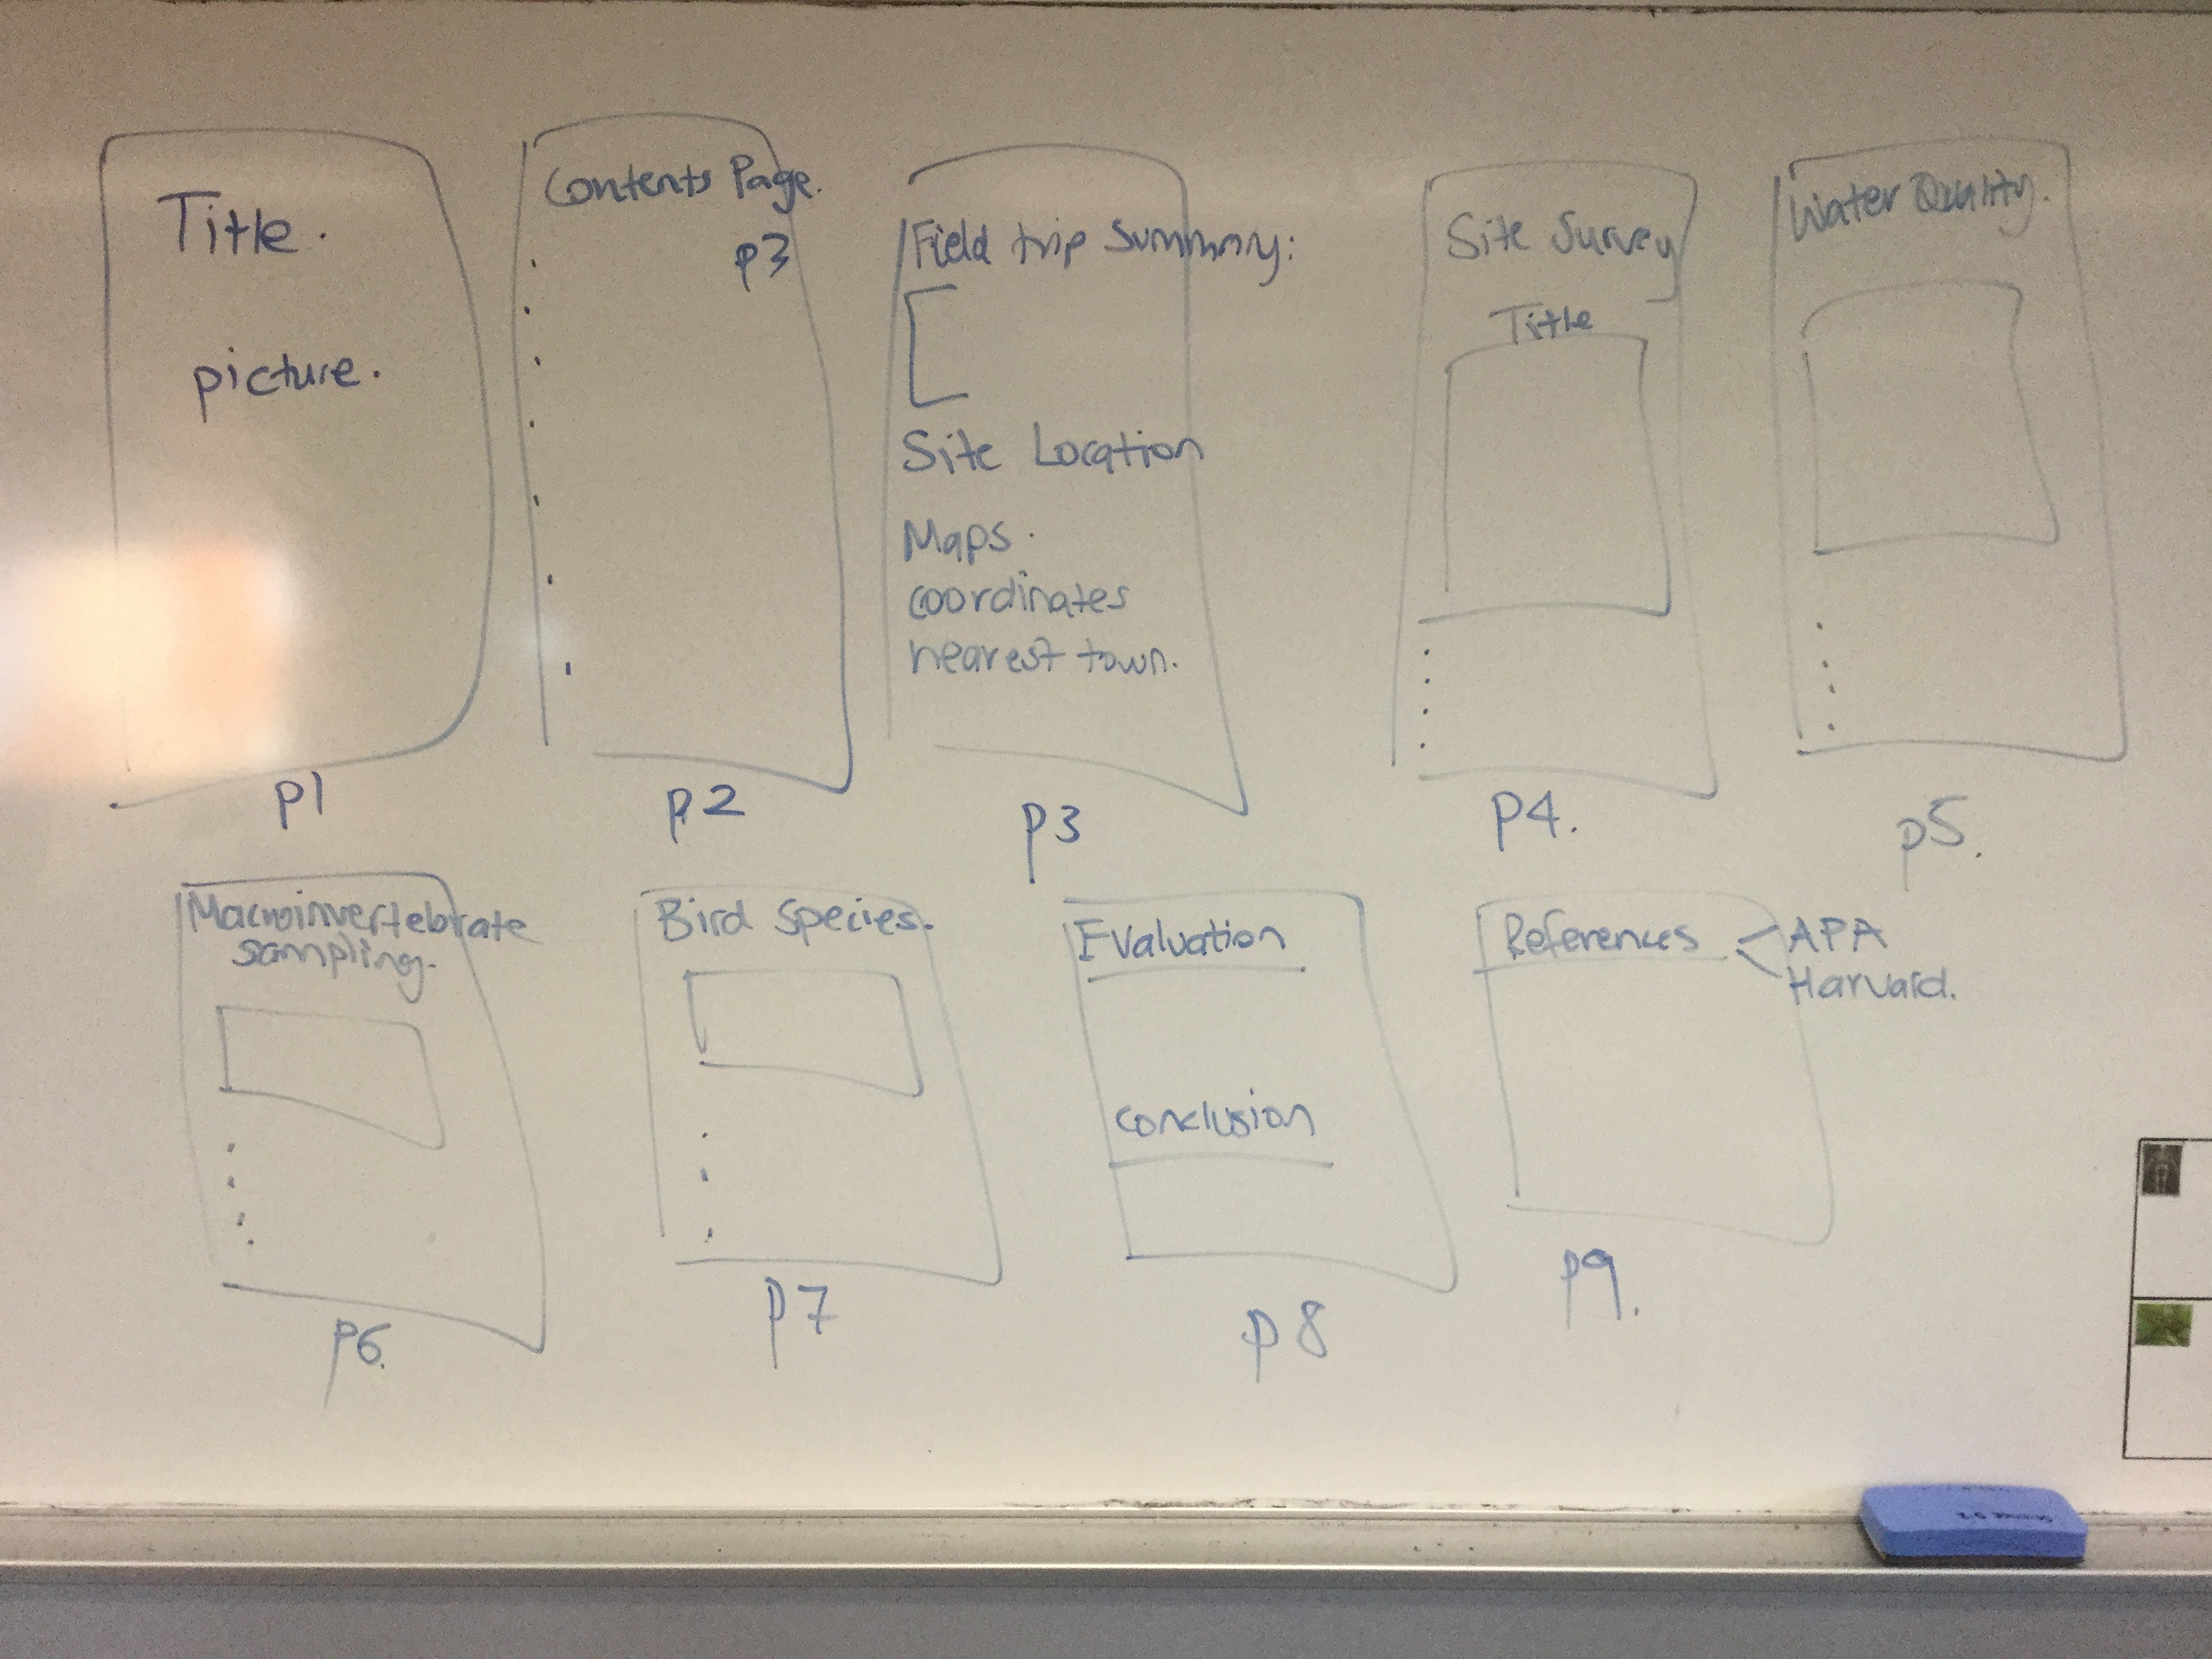 Title.
picture.
p1
Contents Page.
p3
p.2
Field trip Summary:
Site Location
Maps.
coordinates
nearest town.
p3
Site Survey
Title
p4.
Water Quality.
p5.
Macroinvertebrate
sampling.
p6.
Bird Species.
p7
Evaluation
Conclusion
p8
References
APA
Harvard.
p9.